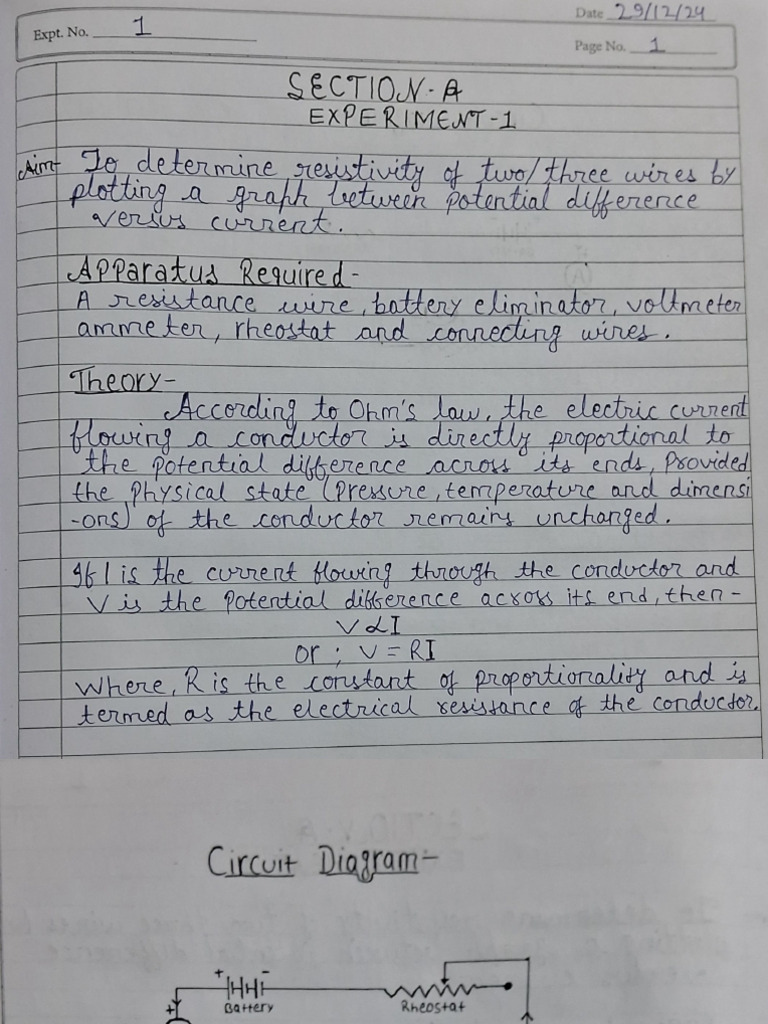 Date 29/12/24
Expt. No. 1
Page No. 1
SECTION-A
EXPERIMENT-1
Aim- To determine resistivity of two/three wires by
plotting a graph between potential difference
versus current.
Apparatus Required-
A resistance wire, battery eliminator, voltmeter
ammeter, rheostat and connecting wires.
Theory-
According to Ohm's law, the electric current
flowing a conductor is directly proportional to
the potential difference across its ends, Provided
the Physical state (Pressure, temperature and dimensi
-ons) of the conductor remains unchanged.
If I is the current flowing through the conductor and
V is the Potential difference across its end, then-
V α I
or ; V = RI
Where, R is the constant of proportionality and is
termed as the electrical resissance of the conductor.
Circuit Diagram-
+ -
Battery
Rheostat
+